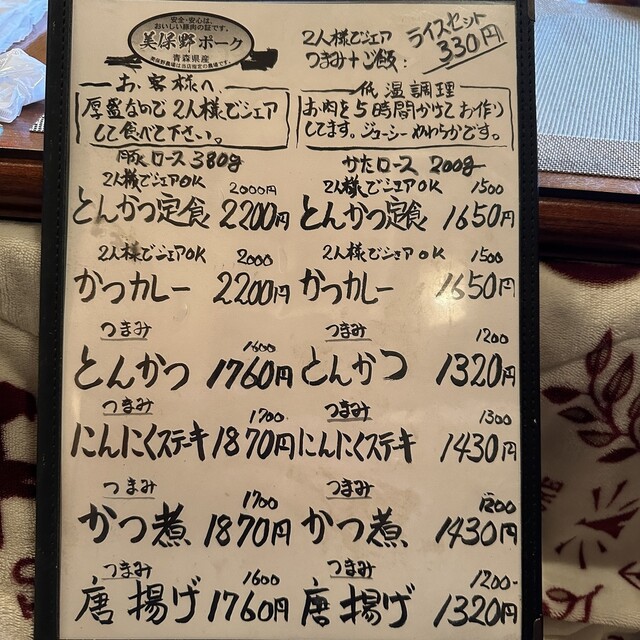 安全・安心は、
おいしい豚肉の証です。
美保野ポーク
青森県産
2人様でシェア
つまみ+ご飯:
ライスセット
330円
お客様へ
厚盛なので2人様でシェア
して食べて下さい。
低温調理
お肉を5時間かけてお作り
してます。ジューシーやわらかです。
豚ロース 380g
2人様でシェアOK 2000円
とんかつ定食 2200円
2人様でシェアOK 2000
かつカレー 2200円
つまみ 1600
とんかつ 1760円
つまみ 1700
にんにくステーキ 1870円
つまみ 1700
かつ煮 1870円
つまみ 1600
唐揚げ 1760円
かたロース 200g
2人様でシェアOK 1500
とんかつ定食 1650円
2人様でシェアOK 1500
かつカレー 1650円
つまみ 1200
とんかつ 1320円
つまみ 1300
にんにくステーキ 1430円
つまみ
かつ煮 1430円
つまみ 1200-
唐揚げ 1320円